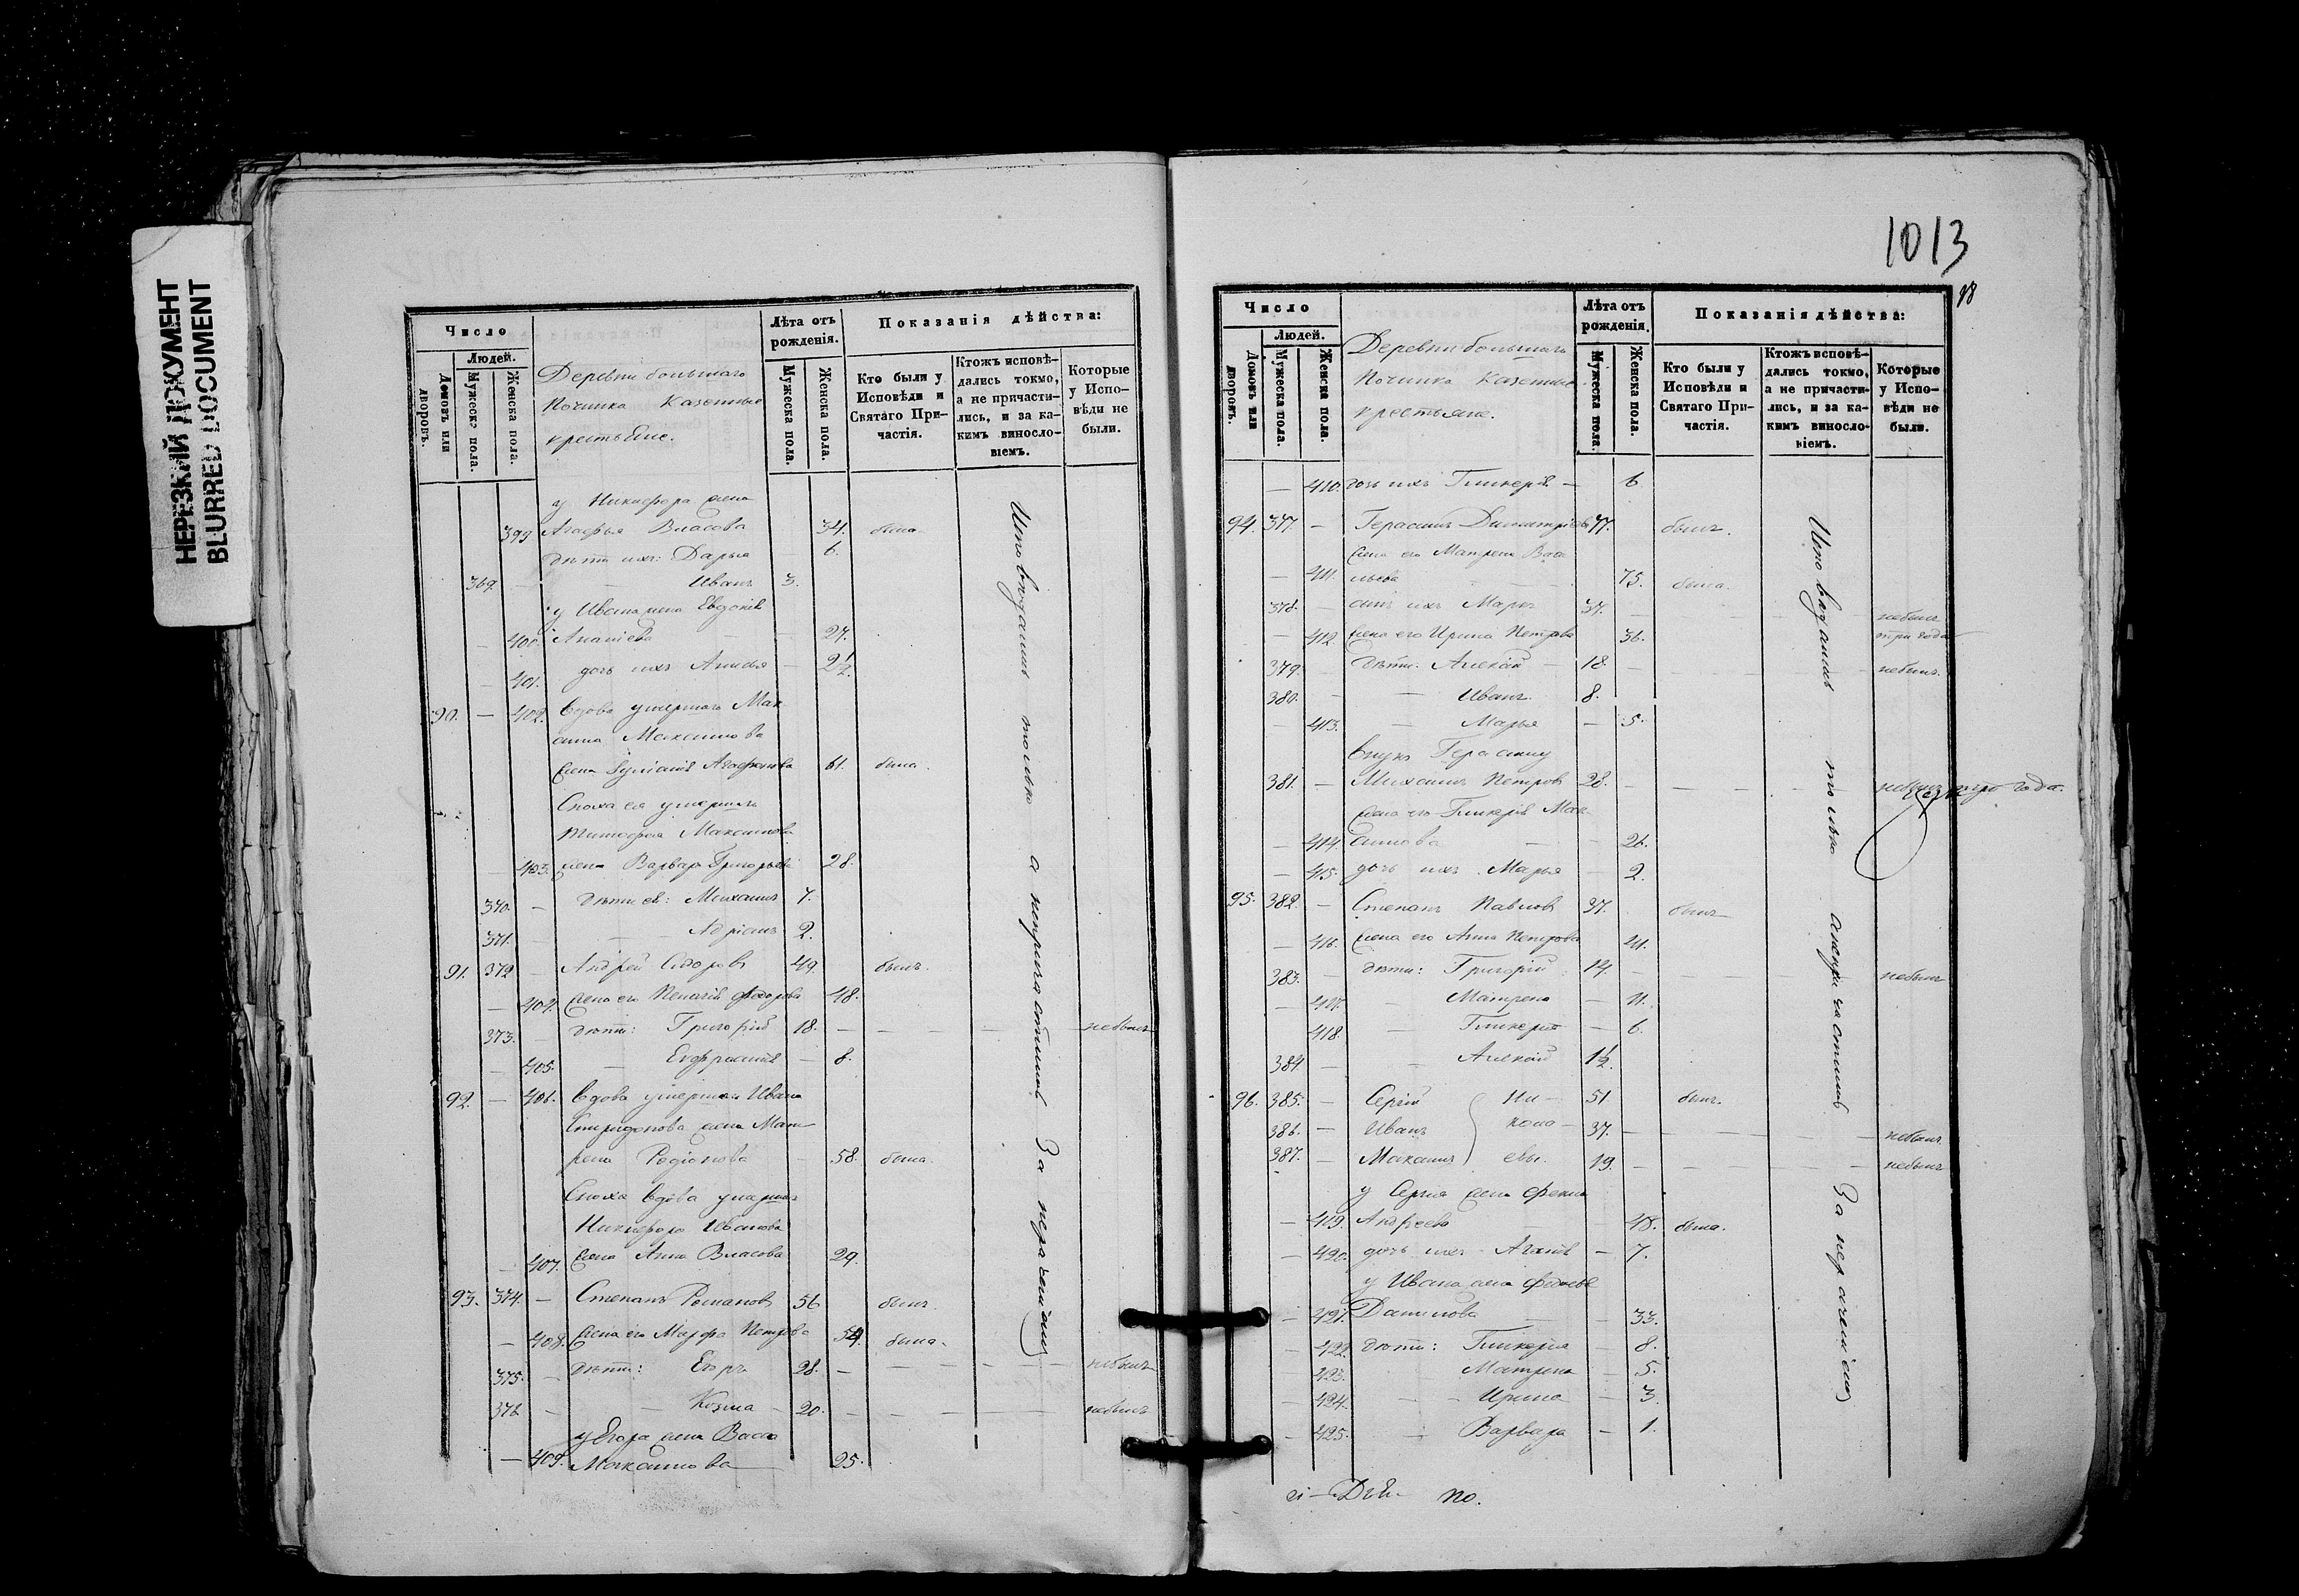 НЕРЕЗКИЙ ДОКУМЕНТ
BLURRED DOCUMENT
Число
Людей.
Домовъ или дворовъ.
Мужеска пола.
Женска пола.
Деревни большаго
Починка Казенные
крестьяне.
Лѣта отъ рожденія.
Мужеска пола.
Женска пола.
Показанія дѣйства:
Кто были у Исповѣди и Святаго Причастія.
Ктожъ исповѣдались токмо, а не причастились, и за какимъ винословіемъ.
Которые у Исповѣди не были.
у Никифора жена
399 Агафья Власова 34. была
дѣти ихъ: Дарья 6.
369. — Иванъ 3.
у Ивана жена Евдокія
— 400. Ананіева 27.
— 401. дочь ихъ Анисья — 2½
90. — 402. Вдова умершаго Мак
сима Максимова
жена Іуліанія Агафонова 61. была.
Сноха ея умершаго
Тимофея Максимова
— 403. жена Варвара Григорьева 28.
370. — дѣти ея: Михаилъ 7.
371. — — Адріанъ 2.
91. 372 — Андрей Сидоровъ 49. былъ.
— 404. жена его Пелагія Федорова 48.
373. — дѣти: Григорій 18. — — — — небылъ
— 405. — Евфрасинія — 8.
92. — 406. Вдова умершаго Ивана
Спиридонова жена Мат
рена Родіонова — 58. была.
Сноха вдова умершаго
Никифора Иванова
— 407. жена Анна Власова 29.
93. 374. — Степанъ Романовъ 56 былъ.
— 408. жена его Марфа Петрова 54. была.
375. — дѣти: Егоръ 28. — — — — небылъ
376 — — Козма — 20. — — — — небылъ
у Егора жена Васса
— 409. Максимова — 25.
Исповѣдались только а непричастились За нераченіемъ
1013
Число
Людей.
Домовъ или дворовъ.
Мужеска пола.
Женска пола.
Деревни большаго
Починка Казенные
крестьяне.
Лѣта отъ рожденія.
Мужеска пола.
Женска пола.
Показанія дѣйства:
Кто были у Исповѣди и Святаго Причастія.
Ктожъ исповѣдались токмо, а не причастились, и за какимъ винословіемъ.
Которые у Исповѣди не были.
— 410. дочь ихъ Гликерія — 6.
94. 377. — Герасимъ Димитріевъ 77. былъ.
жена его Матрена Васи
— 411. льева — 75. была.
378. — сынъ ихъ Маркъ 37. — небылъ
— 412. жена его Ирина Петрова 36. три года
379. — дѣти: Алексій — 18. — — — — небылъ.
380. — — Иванъ. 8.
— 413. — Марья — 5.
внукъ Герасиму
381. — Михаилъ Петровъ 28. — — — — небылъ три года.
жена его Гликерія Мак
— 414. симова — 26.
— 415. дочь ихъ Марья — 2.
95. 382. — Степанъ Павловъ 37. былъ
— 416. жена его Анна Петрова 41.
383. — дѣти: Григорій 14. — — — — небылъ
— 417. — Матрена — 11.
418. — Гликерія — 6.
384. — — Алексій 1½
96. 385. — Сергій Ни — 51. былъ.
386. — Иванъ кола — 37. — — — — небылъ
387. — Максимъ евы. 19. — — — — небылъ
у Сергія жена Фекла
— 419. Андреева 48. была.
— 420. дочь ихъ Агапія — 7.
у Ивана жена Федосья
— 421. Данилова — 33.
— 422. дѣти: Гликерія — 8.
— 423. Матрена — 5.
— 424. — — Ирина — 3.
— 425. — Варвара — 1.
Исповѣдались только а непричастились За нераченіемъ
по.